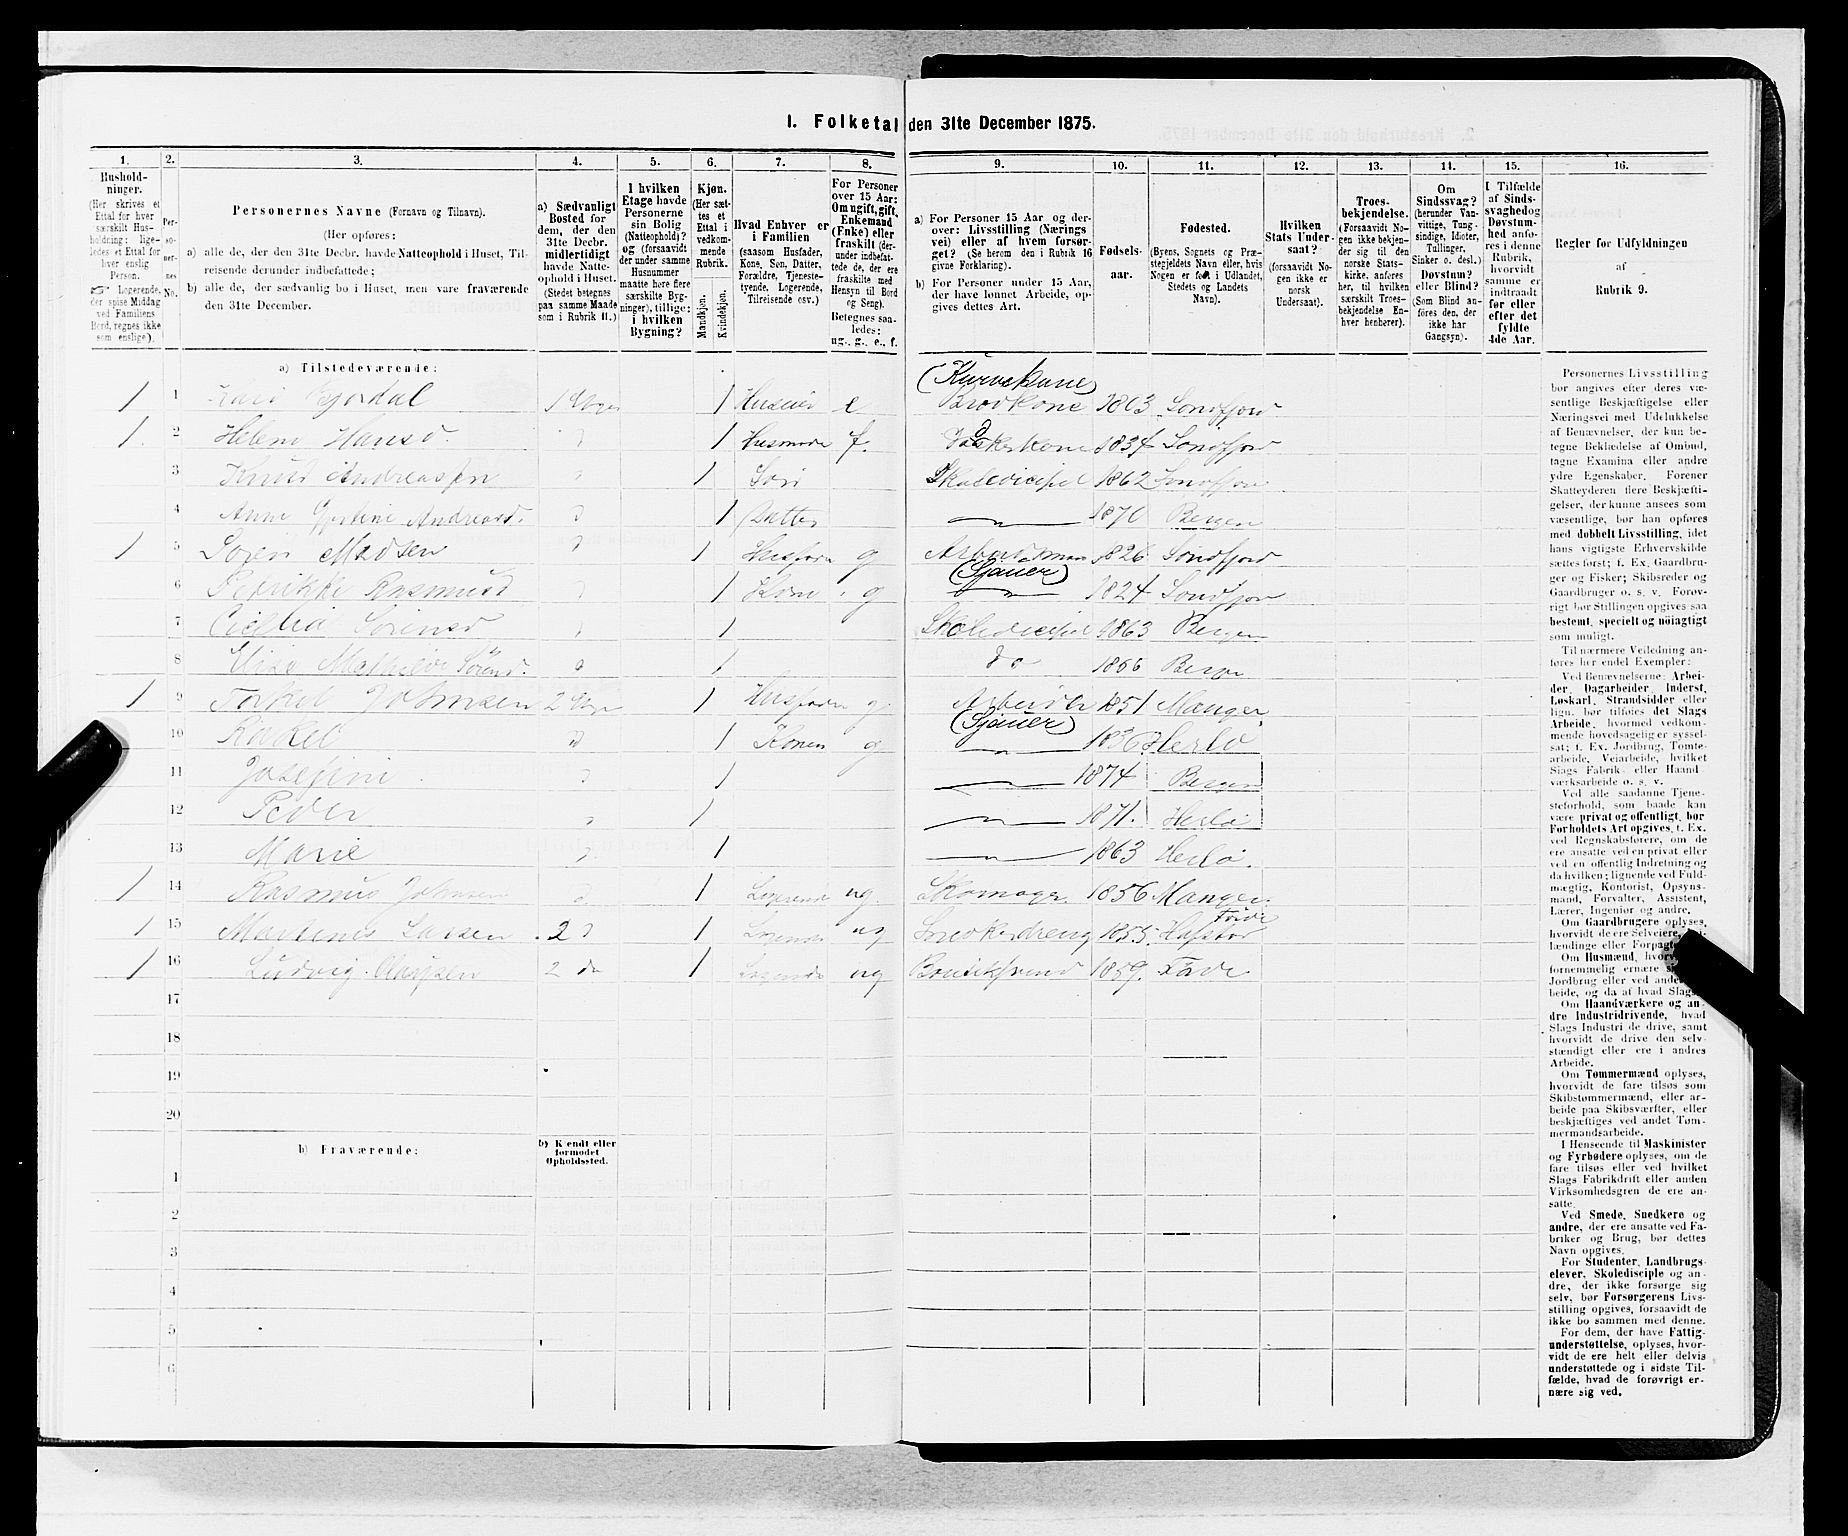 1. Folketal den 31te December 1875.
1. 2. 3. 4. 5. 6. 7. 8. 9. 10. 11. 12. 13. 14. 15. 16.
Hushold-
ninger.
(Her skrives et
Ettal for hver
særskilt Hus-
holdning; lige-
ledes et Ettal for
hver enslig
Person.
Logerende,
der spise Middag
ved Familiens
Bord, regnes ikke
som enslige).
Per-
so-
ner-
nes
No.
Personernes Navne (Fornavn og Tilnavn).
(Her opføres:
a) alle de, der den 31te Decbr. havde Natteophold i Huset, Til-
reisende derunder indbefattede;
b) alle de, der sædvanlig bo i Huset, men vare fraværende
den 31te December.
a) Sædvanligt
Bosted for
dem, der den
31te Decbr.
midlertidigt
havde Natte-
ophold i Huset.
(Stedet betegnes
paa samme Maade
som i Rubrik 11.)
I hvilken
Etage havde
Personerne
sin Bolig
(Natteophold)?
og (forsaavidt
der under samme
Husnummer
maatte høre flere
særskilte Byg-
ninger), tillige:
i hvilken
Bygning?
Kjøn.
(Her sæt-
tes et
Ettal i
vedkom-
mende
Rubrik.
Mandkjøn.
Kvindekjøn.
Hvad Enhver er
i Familien
(saasom Husfader,
Kone, Søn, Datter,
Forældre, Tjeneste-
tyende, Logerende,
Tilreisende osv.)
For Personer
over 15 Aar:
Om ugift, gift,
Enkemand
(Enke) eller
fraskilt (der-
under indbefat-
tede de, der ere
fraskilte med
Hensyn til Bord
og Seng).
Betegnes saa-
ledes:
ug., g., e., f.
a) For Personer 15 Aar og der-
over: Livsstilling (Nærings
vei) eller af hvem forsør-
get? (Se herom den i Rubrik 16
givne Forklaring).
b) For Personer under 15 Aar,
der have lønnet Arbeide, op-
gives dettes Art.
Fødsels-
aar.
Fødested.
(Byens, Sognets og Præ-
stegjeldets Navn eller, hvis
Nogen er født i Udlandet,
Stedets og Landets
Navn).
Hvilken
Stats Under-
saat?
(forsaavidt No-
gen ikke er
norsk
Undersaat).
Troes-
bekjendelse.
(Forsaavidt No-
gen ikke bekjen-
der sig til den
norske Stats-
kirke, anføres
her, til hvilken
særskilt Troes-
bekjendelse En-
hver henhører).
Om
Sindssvag?
(herunder Van-
vittige, Tung-
sindige, Idioter,
Tullinger,
Sinker o. desl.)
Døvstum?
eller Blind?
(Som Blind an-
føres den, der
ikke har
Gangsyn).
I Tilfælde
af Sinds-
svaghed og
Døvstum-
hed anfø-
res i denne
Rubrik,
hvorvidt
samme er
indtraadt
før eller
efter det
fyldte
4de Aar.
Regler for Udfyldningen
af
Rubrik 9.
a) Tilstedeværende:
(Kurvekone)
1 1 1 Etage 1 e Brødkone 1803 Søndfjord
1 2 Helene Hansd. 1 Husmoder f. Vaskerkone 1834 Søndfjord
3 Knud Andreassen 1 Søn Skoledicipel 1862 Søndfjor
4 Anne Andreasd. 1 Datter 1870 Bergen
1 5 Søren Madsen 1 Husfader g Arbeidsman 1826 Søndfjord
(Sjauer)
6 Rasmusd 1 Kone g 1824 Søndfjor
7 Sørensd 1 Skoledicipel 1863 Bergen
8 Mathilde Sørensd. 1 do 1866 Bergen
1 9 Torkel Johnsen 2 Etage 1 Husfader g Arbeider 1851 Manger
(Sjauer)
10 Rakel 1 Konen g 1836 Herlø
11 Josefine 1 1874 Bergen
12 Peder 1 1871. Herlø
13 Marie 1 1863 Herlø.
1 14 Rasmus Johnsen 1 Logerende ug. Skomager 1856 Manger.
Førde
1 15 Martinus Larsen 2 1 Logerende ug Snedkerdreng 1855 Hafstad
1 16 Ludvig 2 do 1 Logerende ug Boutiksvend 1859. Førde
17
18
19
20
b) Fraværende:
b) Kjendt eller
formodet
Opholdssted.
1
2
3
4
5
6
Personernes Livsstilling
bør angives efter deres væ-
sentlige Beskjæftigelse eller
Næringsvei med Udelukkelse
af Benævnelser, der kun be-
tegne Beklædelse af Ombud,
tagne Examina eller andre
ydre Egenskaber. Forener
Skatteyderen flere Beskjæfti-
gelser, der kunne ansees som
væsentlige, bør han opføres
med dobbelt Livsstilling, idet
hans vigtigste Erhvervskilde
sættes først; f. Ex. Gaardbru-
ger og Fisker; Skibsreder og
Gaardbruger o. s. v. Forøv-
rigt bør Stillingen opgives saa
bestemt, specielt og nøiagtigt
som muligt.
Til nærmere Veiledning an-
føres her endel Exempler:
Ved Benævnelserne: Arbei-
der, Dagarbeider, Inderst,
Løskarl, Strandsidder eller
lign. bør tilføies det Slags
Arbeide, hvormed vedkom-
mende hovedsagelig er syssel-
sat; f. Ex. Jordbrug, Tomte-
arbeide, Veiarbeide, hvilket
Slags Fabrik- eller Haand-
værksarbeide o. s. v.
Ved alle saadanne Tjene-
steforhold, som baade kan
være privat og offentligt, bør
Forholdets Art opgives, t. Ex.
ved Regnskabsførere, om de
ere ansatte ved en privat eller
ved en offentlig Indretning og
da hvilken; lignende ved Fuld-
mægtig, Kontorist, Opsyns-
mand, Forvalter, Assistent,
Lærer, Ingeniør og andre.
Om Gaardbrugere oplyses,
hvorvidt de ere Selveiere,
lændinge eller
Om Husmænd,
fornemmelig ernære
Jordbrug eller ved
beide, og da af hvad
Om Haandværkere og an-
dre Industridrivende, hvad
Slags Industri de drive, samt
hvorvidt de drive den selv-
stændigt eller ere i andres
Arbeide.
Om Tømmermænd oplyses,
hvorvidt de fare tilsøs som
Skibstømmermænd, eller ar-
beide paa Skibsværfter, eller
beskjæftiges ved andet Tøm-
mermandsarbeide.
I Henseende til Maskinister
og Fyrbødere oplyses, om de
fare tilsøs eller ved hvilket
Slags Fabrikdrift eller anden
Virksomhedsgren de ere an-
satte.
Ved Smede, Snedkere og
andre, der ere ansatte ved Fa-
briker og Brug, bør dettes
Navn opgives.
For Studenter, Landbrugs-
elever, Skoledisciple og an-
dre, der ikke forsørge sig
selv, bør Forsørgerens Livs-
stilling opgives, forsaavidt de
ikke bo sammen med denne.
For dem, der have Fattig-
understøttelse, oplyses, hvor-
vidt de ere helt eller delvis
understøttede og i sidste Til-
fælde, hvad de forøvrigt er-
nære sig ved.